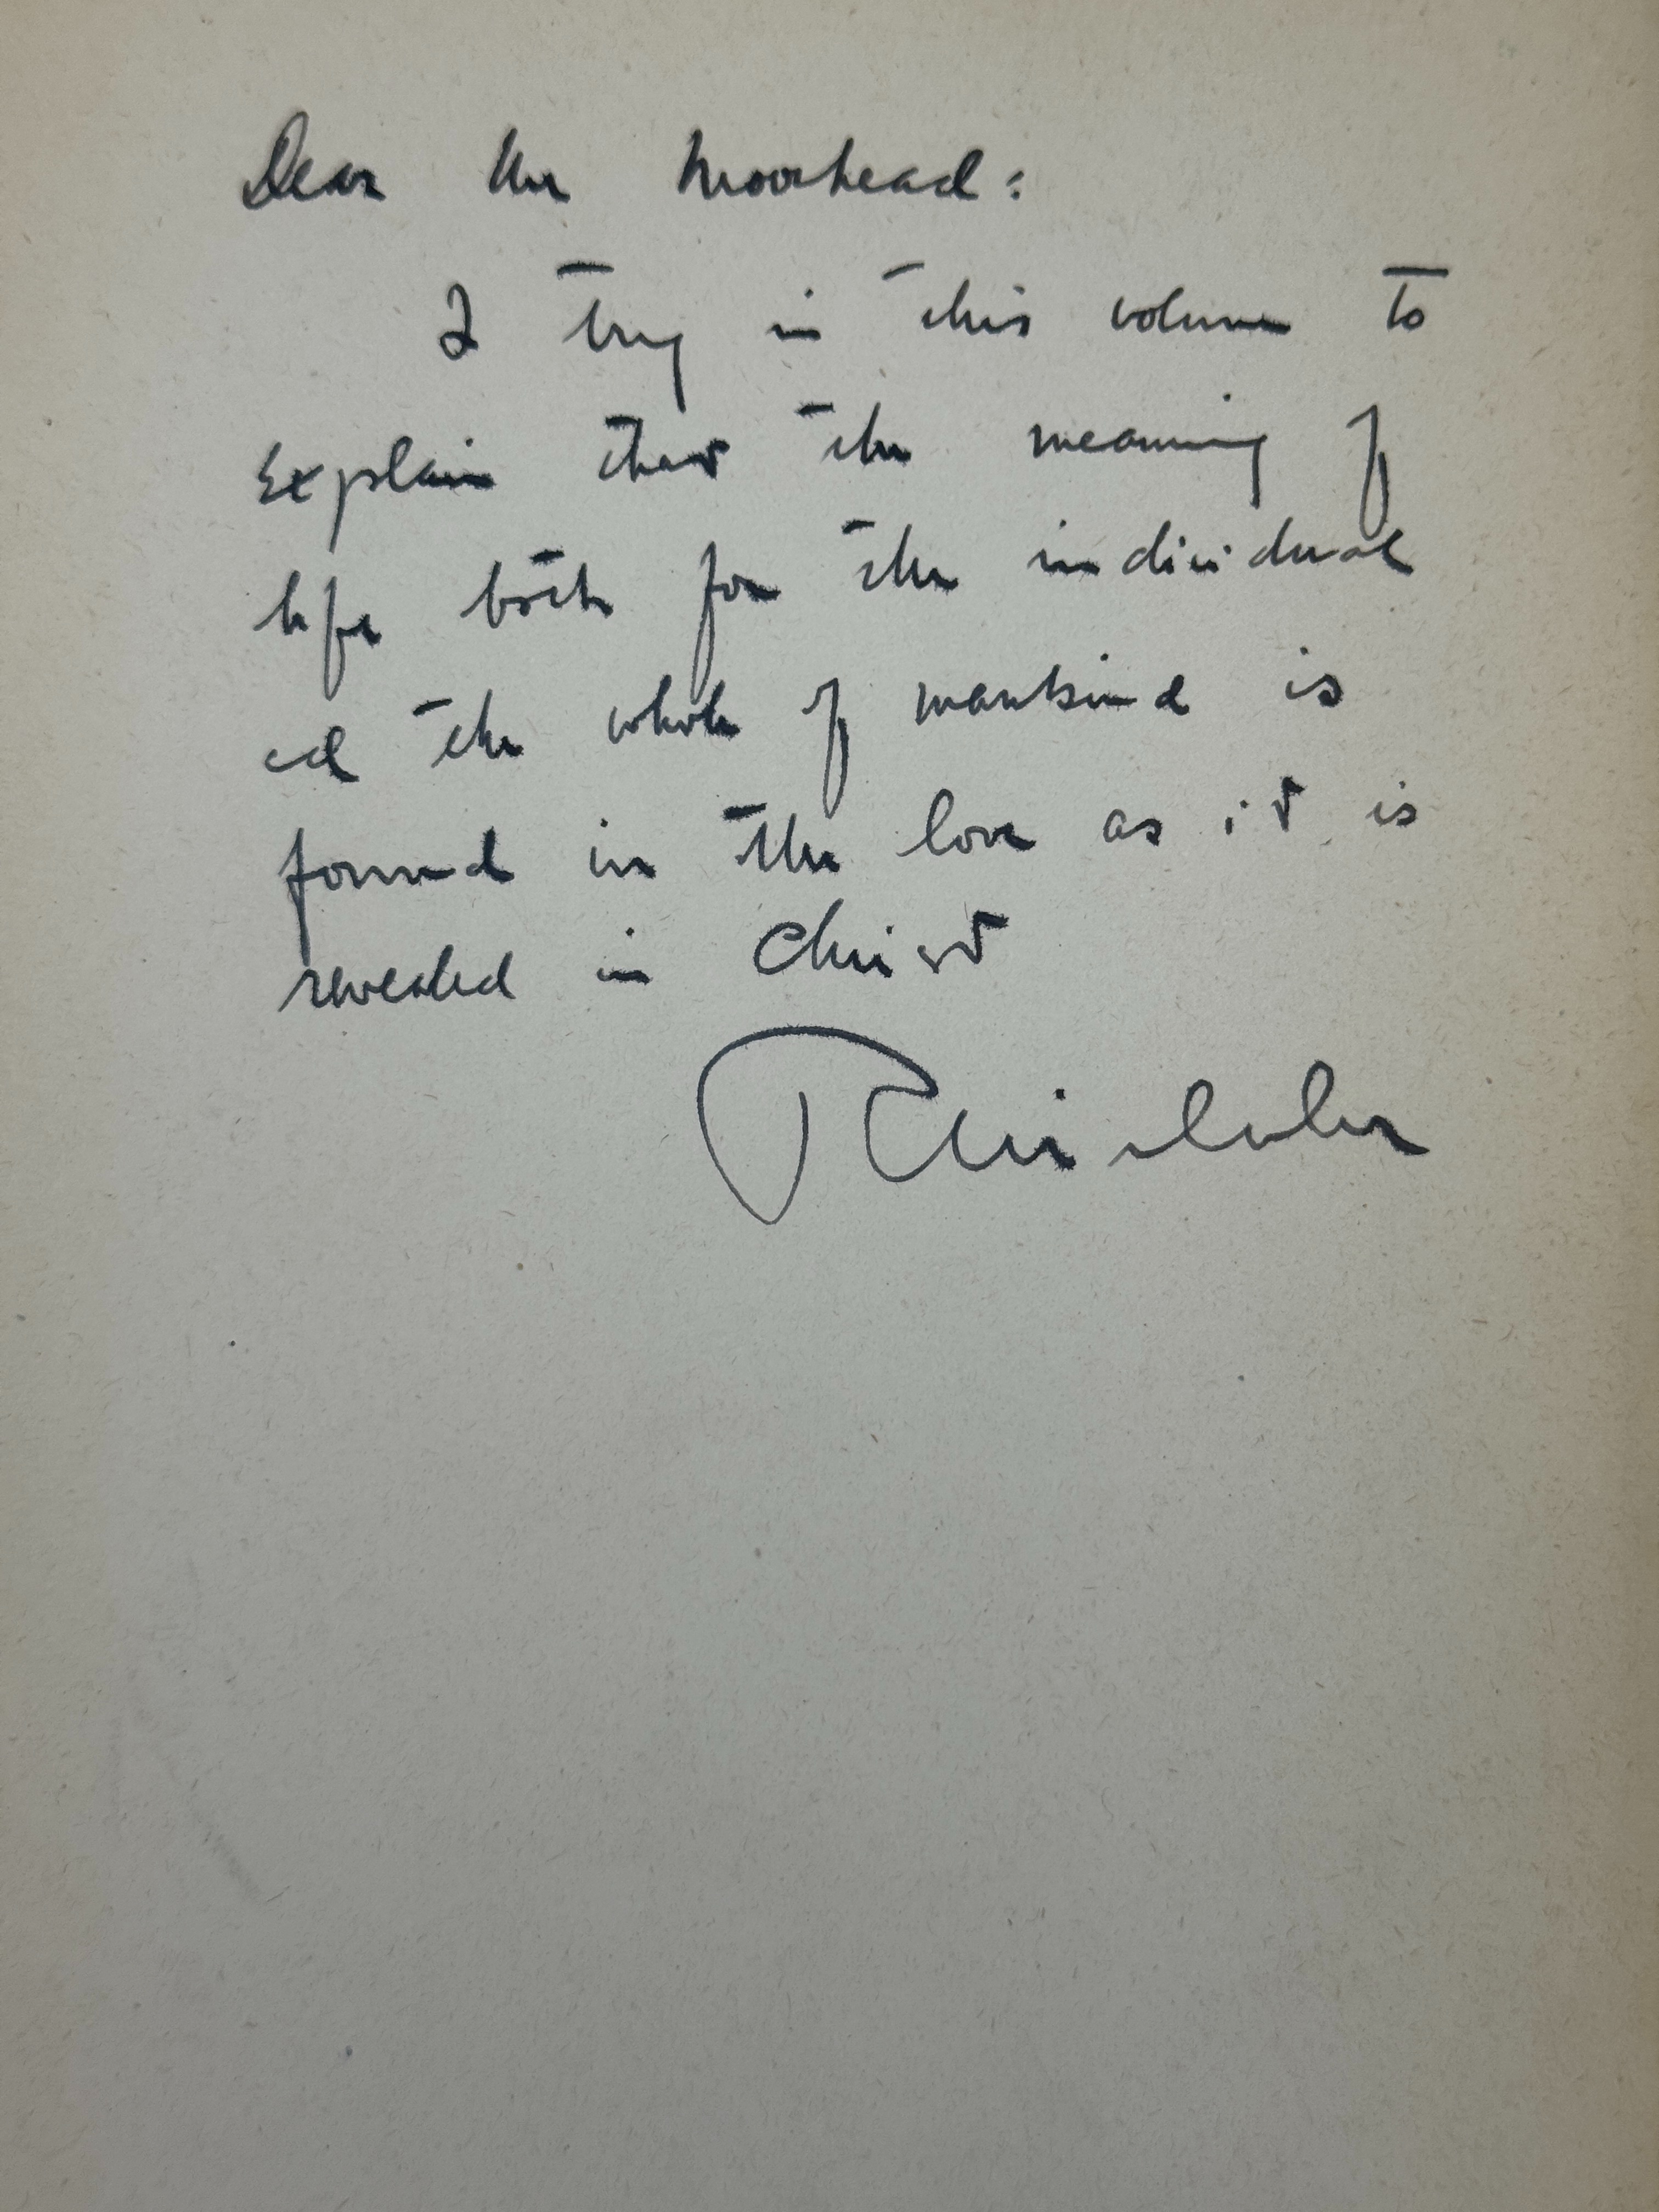 Dear Mr Moorhead:
I try in this volume to
explain that the meaning of
life both for the individual
and the whole of mankind is
found in the love as it is
revealed in Christ